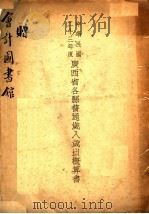 中華民國
二十二年度
廣西省各縣普通歲入歲出概算書
會計圖書館